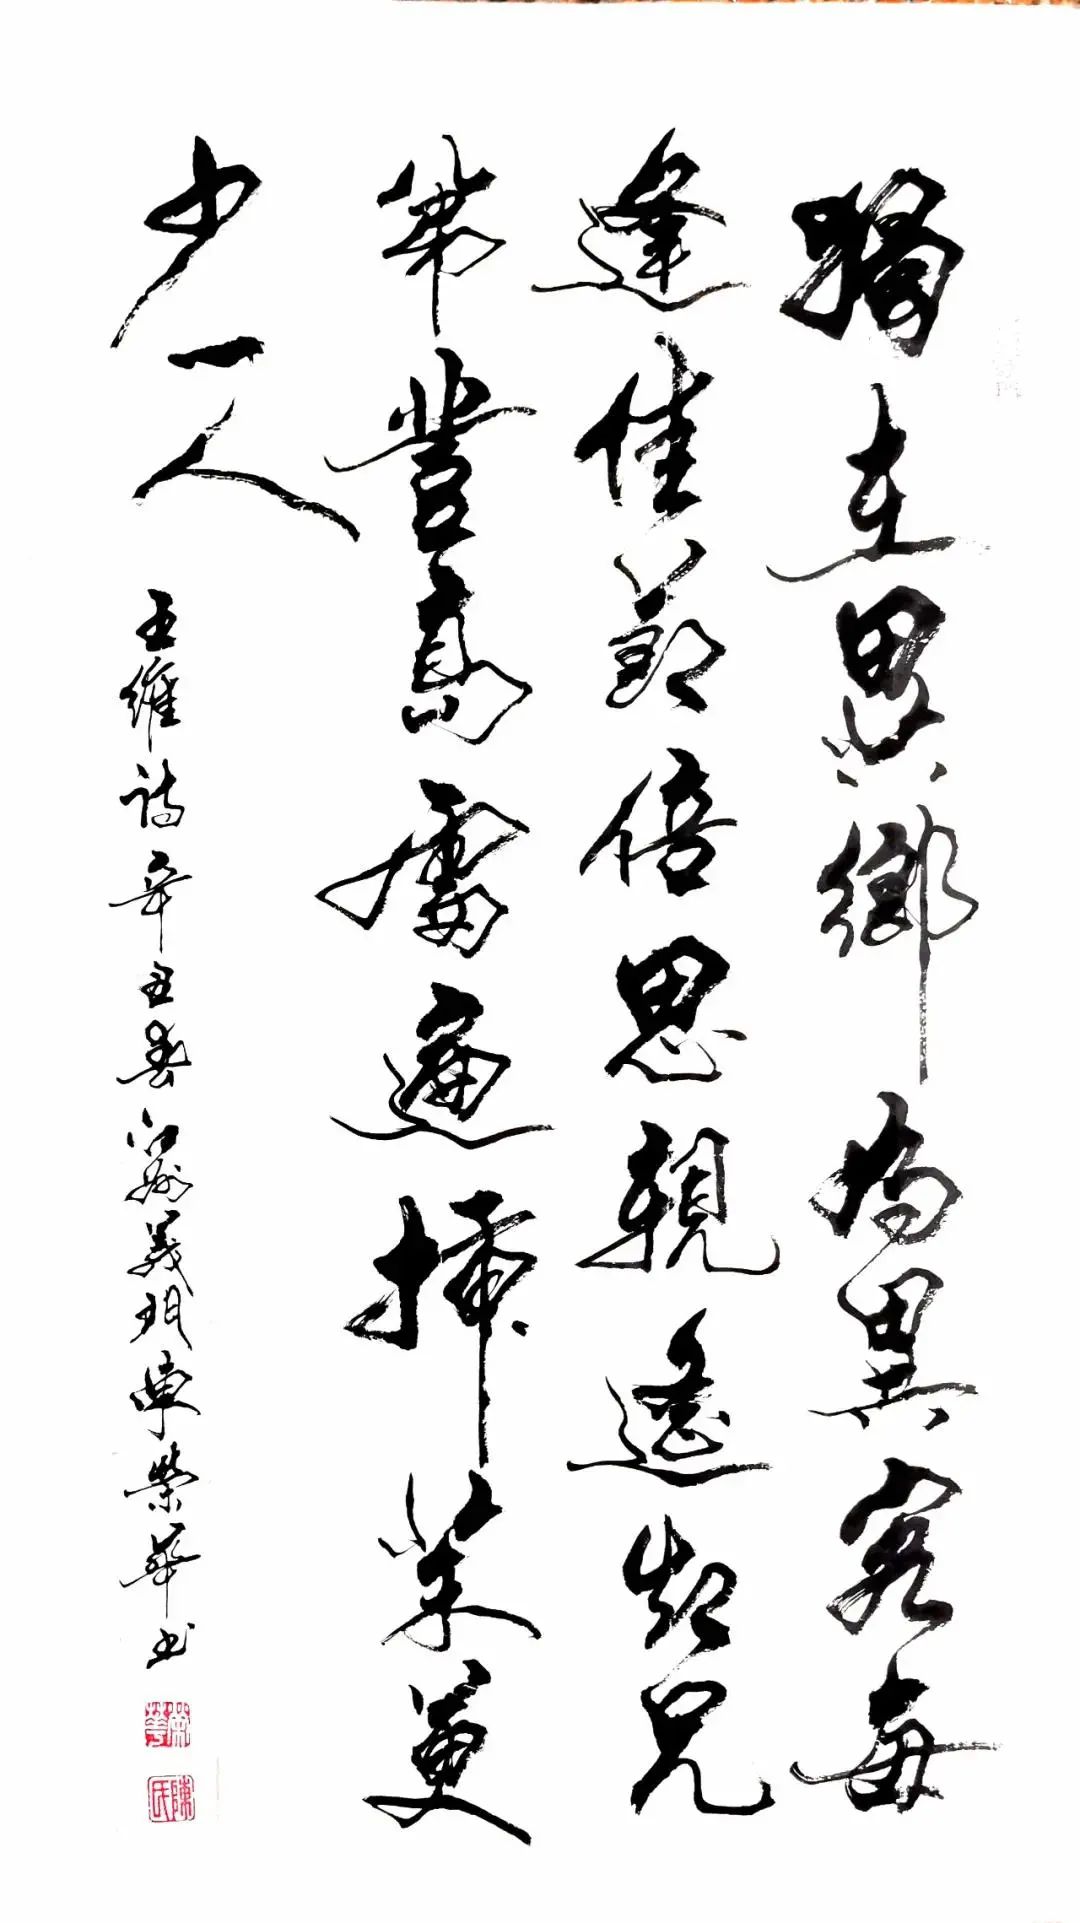 獨在異鄉為異客每
逢佳節倍思親遙知兄
弟登高處遍插茱萸
少一人
王維詩 辛丑春 義烏陳榮華书
榮華
陳氏